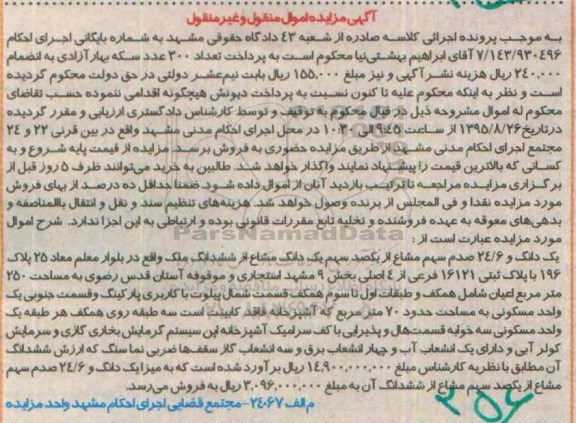 آگهی مزایده اموال منقول و غیر منقول
به موجب پرونده اجرائی کلاسه صادره از شعبه ۴۳ دادگاه حقوقی مشهد به شماره بایگانی اجرای احکام
۷/۱۴۳/۹۳۰۴۹۶ آقای ابراهیم بهشتی‌نیا محکوم است به پرداخت تعداد ۳۰۰ عدد سکه بهار آزادی به انضمام
۲۴۰,۰۰۰ ریال هزینه نشر آگهی و نیز مبلغ ۱۵۵,۰۰۰ ریال بابت نیم‌عشر دولتی در حق دولت محکوم گردیده
است و نظر به اینکه محکوم علیه تا کنون نسبت به پرداخت دیونش هیچگونه اقدامی ننموده حسب تقاضای
محکوم له اموال مشروحه ذیل در قبال محکوم به توقیف و توسط کارشناس دادگستری ارزیابی و مقرر گردیده
در تاریخ ۱۳۹۵/۸/۲۶ از ساعت ۹:۴۵ الی ۱۰:۳۰ در محل اجرای احکام مدنی مشهد واقع در بین قرنی ۲۲ و ۲۴
مجتمع اجرای احکام مدنی مشهد از طریق مزایده حضوری به فروش برسد. مزایده از قیمت پایه شروع و به
کسانی که بالاترین قیمت را پیشنهاد نمایند واگذار خواهد شد. طالبین به خرید می‌توانند ظرف ۵ روز قبل از
برگزاری مزایده مراجعه تا ترتیب بازدید آنان از اموال داده شود. ضمنا حداقل ده درصد از بهای فروش
مورد مزایده نقدا و فی المجلس از برنده وصول خواهد شد. هزینه‌های تنظیم سند و نقل و انتقال بالمناصفه و
بدهی‌های معوقه به عهده فروشنده و تخلیه تابع مقررات قانونی بوده و ارتباطی به این اجرا ندارد. شرح اموال
مورد مزایده عبارت است از :
ParsNamadData
یک دانگ و ۲۴/۶ صدم سهم مشاع از یکصد سهم یک دانگ مشاع از ششدانگ ملک واقع در بلوار معلم معاد ۲۵ پلاک
۱۹۶ با پلاک ثبتی ۱۶۱۲۱ فرعی از ۴ اصلی بخش ۹ مشهد استجاری و موقوفه آستان قدس رضوی به مساحت ۲۵۰
متر مربع اعیان شامل همکف و طبقات اول تا سوم همکف قسمت شمال پیلوت با کاربری پارکینگ و قسمت جنوبی یک
واحد مسکونی به مساحت حدود ۷۰ متر مربع که آشپزخانه فاقد کابینت است سه طبقه روی همکف هر طبقه یک
واحد مسکونی سه خوابه قسمت‌هال و پذیرایی با کف سرامیک آشپزخانه اپن سیستم گرمایش بخاری گازی و سرمایش
کولر آبی و دارای یک انشعاب آب و چهار انشعاب برق و سه انشعاب گاز سقف‌ها ضربی نما سنگ که ارزش ششدانگ
آن مطابق با نظریه کارشناس مبلغ ۱۴,۹۰۰,۰۰۰,۰۰۰ ریال برآورد شده است که به میزا یک دانگ و ۲۴/۶ صدم سهم
مشاع از یکصد سهم مشاع از ششدانگ آن به مبلغ ۳,۰۹۶,۰۰۰,۰۰۰ ریال به فروش می‌رسد.
م الف ۲۴۰۶۷- مجتمع قضایی اجرای احکام مشهد واحد مزایده